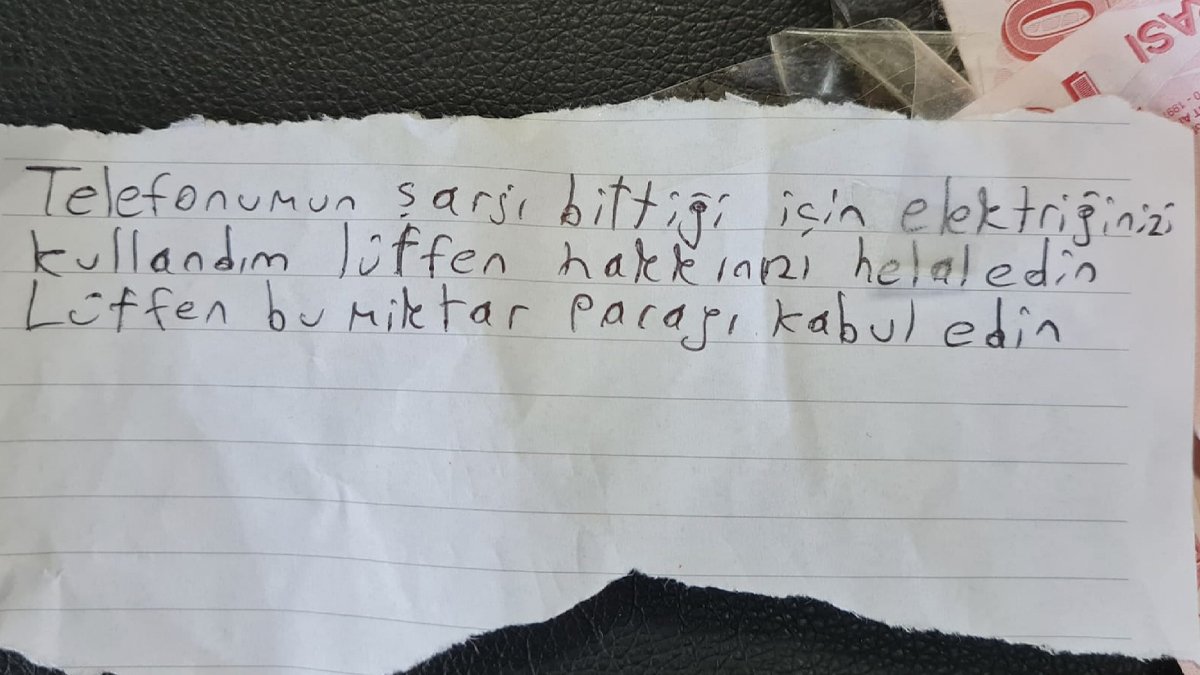 Telefonumun şarjı bittiği için elektriğinizi
kullandım lütfen hakkınızı helal edin
Lütfen bu miktar parayı kabul edin
ASI